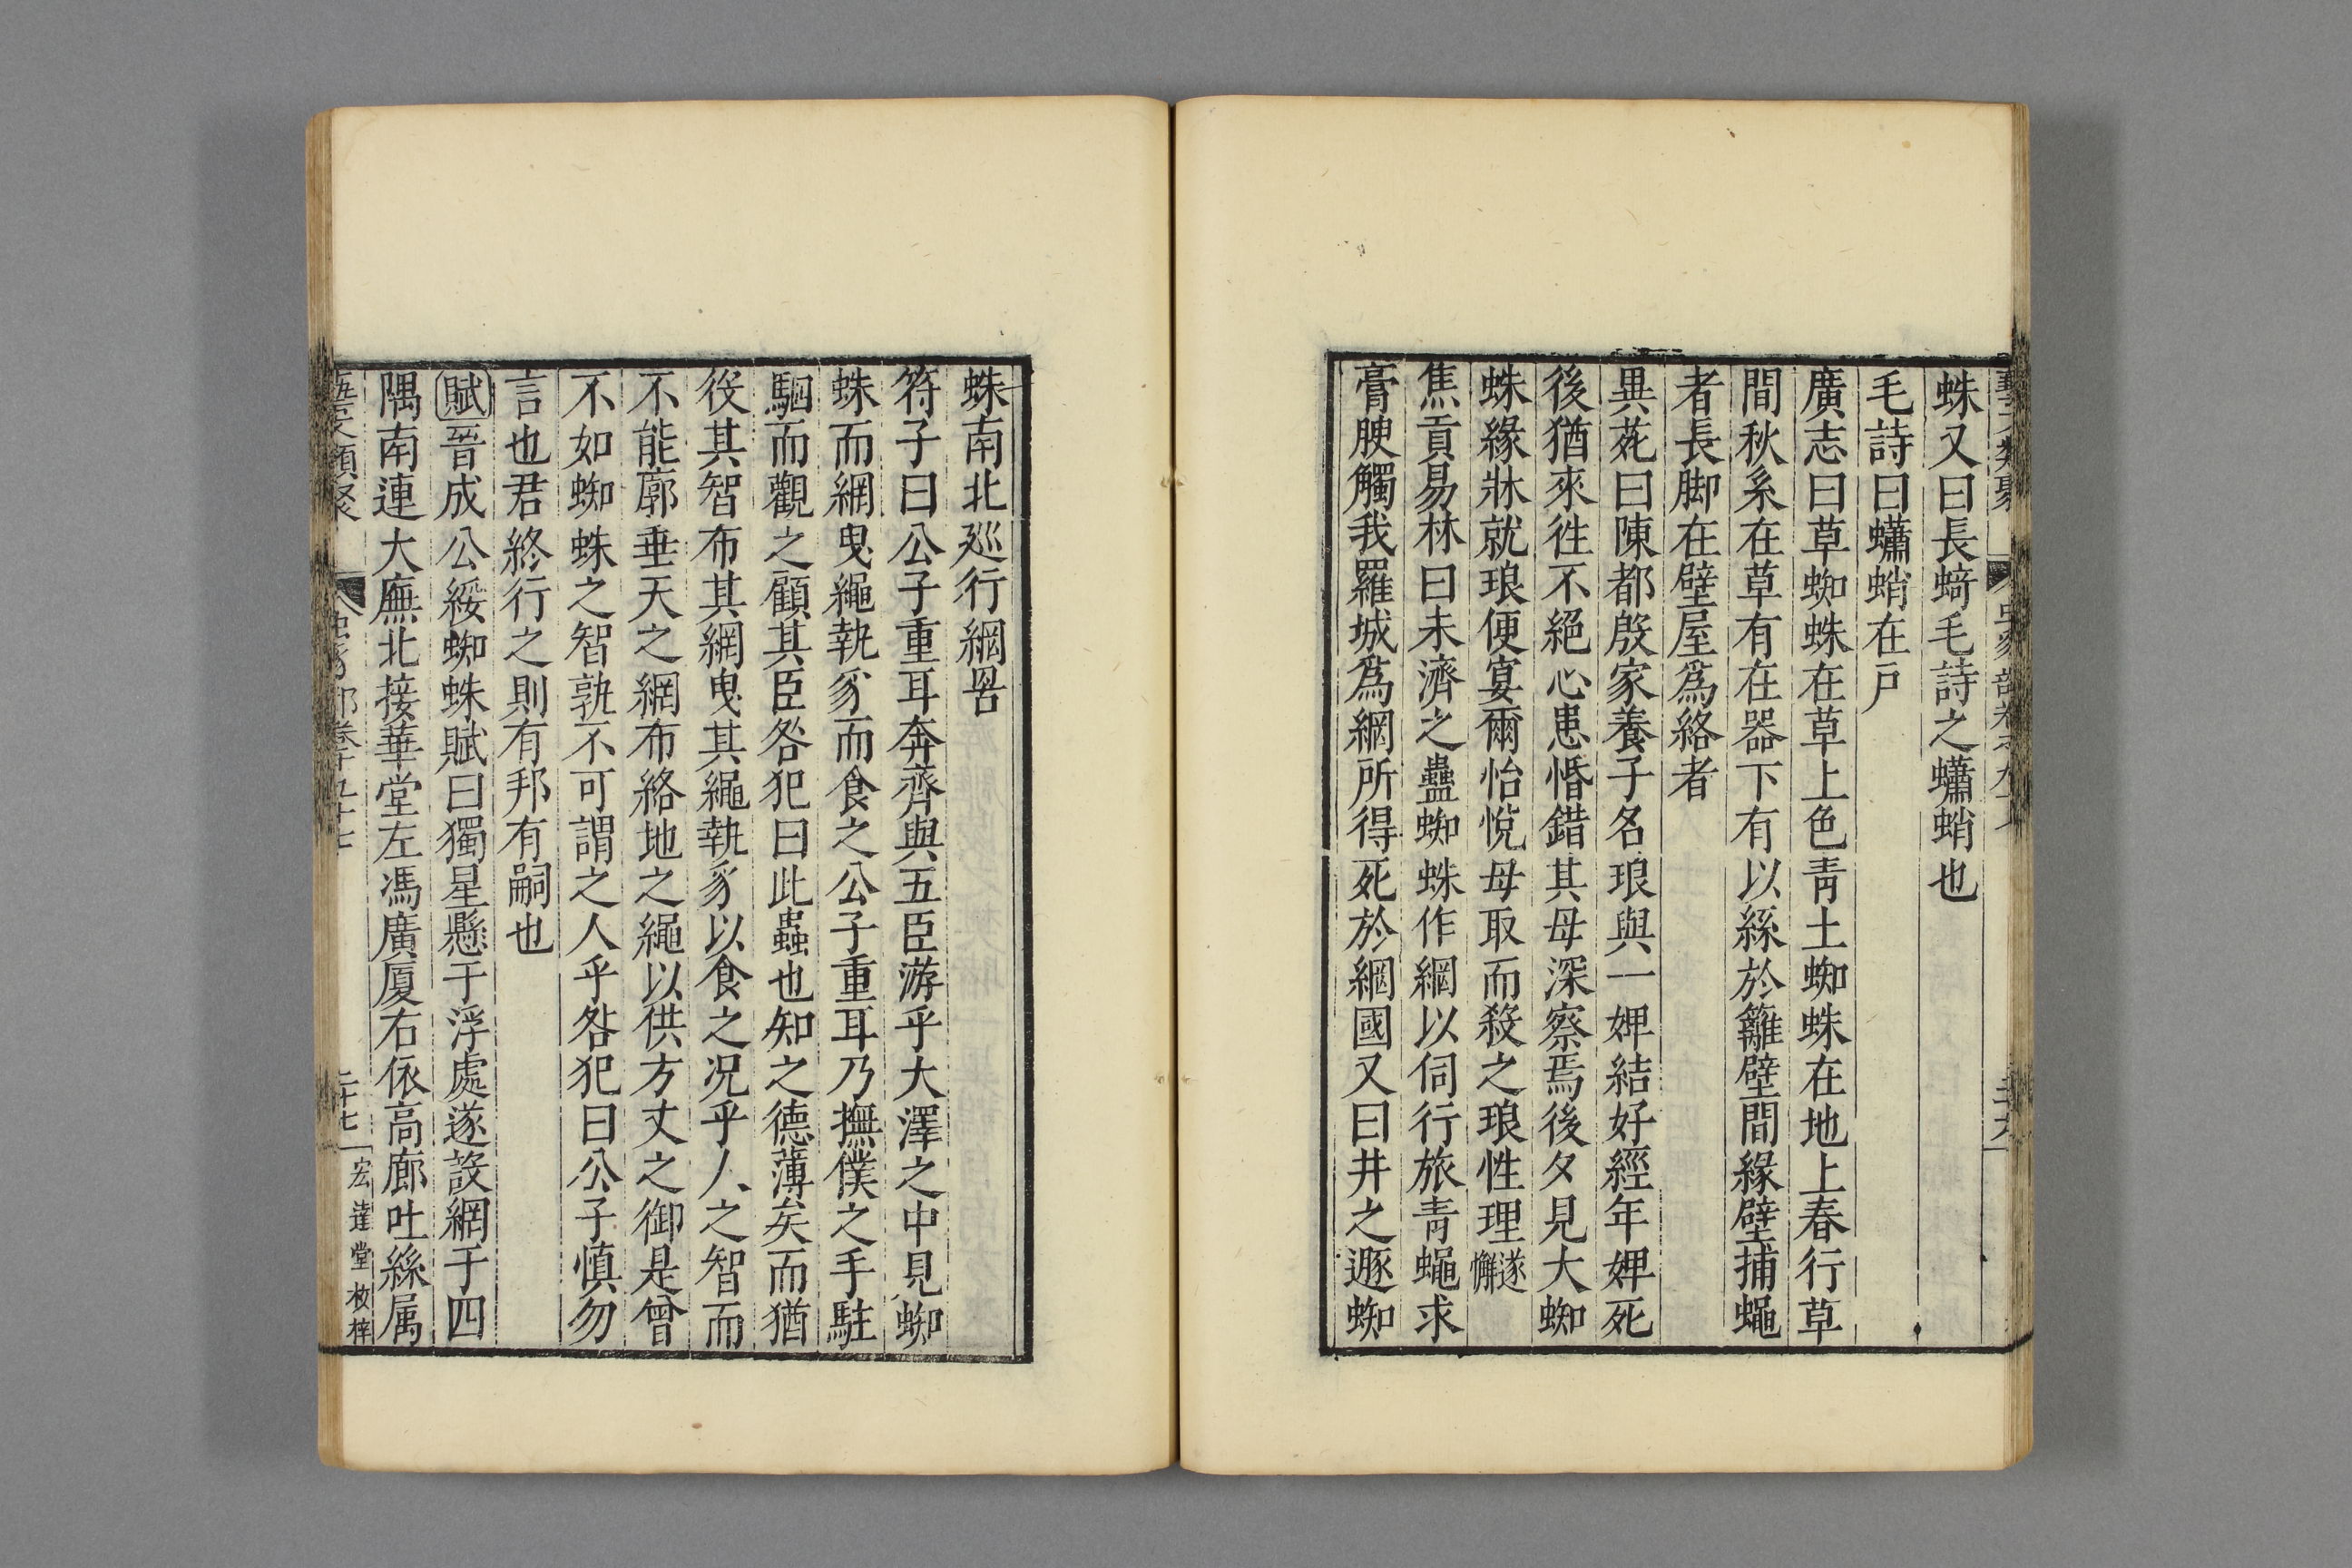 蛛又曰長蜻毛詩之蠨蛸也
毛詩曰蠨蛸在戶
廣志曰草蜘蛛在草上色靑土蜘蛛在地上春行草
間秋系在草有在器下有以絲於籬壁間緣壁捕蠅
者長脚在壁屋爲絡者
異苑曰陳都殷家養子名琅與一婢結好經年婢死
後猶來徃不絕心患惛錯其母深察焉後夕見大蜘
蛛緣牀就琅便宴爾怡悅母取而殺之琅性理遂懈
焦貢易林曰未濟之蠱蜘蛛作網以伺行旅靑蠅求
膏腴觸我羅城爲網所得死於網國又曰井之遯蜘
蛛南北廵行網罟
符子曰公子重耳奔齊與五臣游乎大澤之中見蜘
蛛而網曳繩執豸而食之公子重耳乃撫僕之手駐
駟而觀之顧其臣咎犯曰此蟲也知之德薄矣而猶
役其智布其網曳其繩執豸以食之况乎人之智而
不能廓垂天之網布絡地之繩以供方丈之御是曾
不如蜘蛛之智孰不可謂之人乎咎犯曰公子慎勿
言也君終行之則有邦有嗣也
賦晉成公綏蜘蛛賦曰獨星懸于浮處遂設網于四
隅南連大廡北接華堂左馮廣厦右依高廊吐絲属
二十七
宏達堂校梓